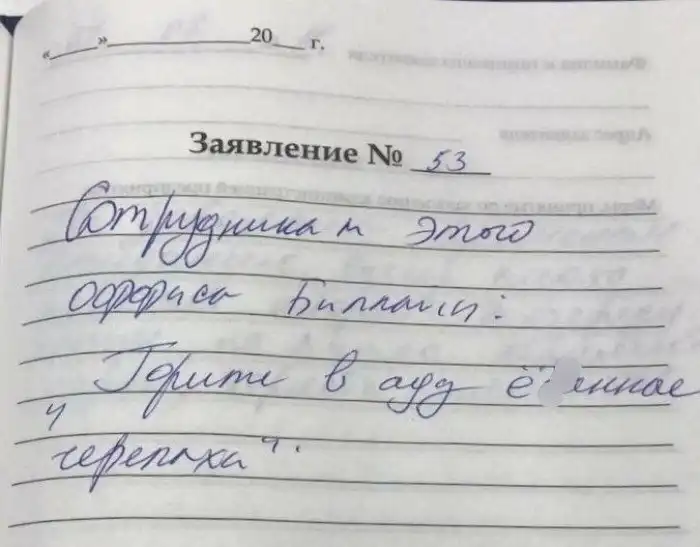 «___»______________20___ г.
Заявление № 53
Сотрудникам этого
оффиса Биллайн:
Горите в аду ё енные
"черепахи".